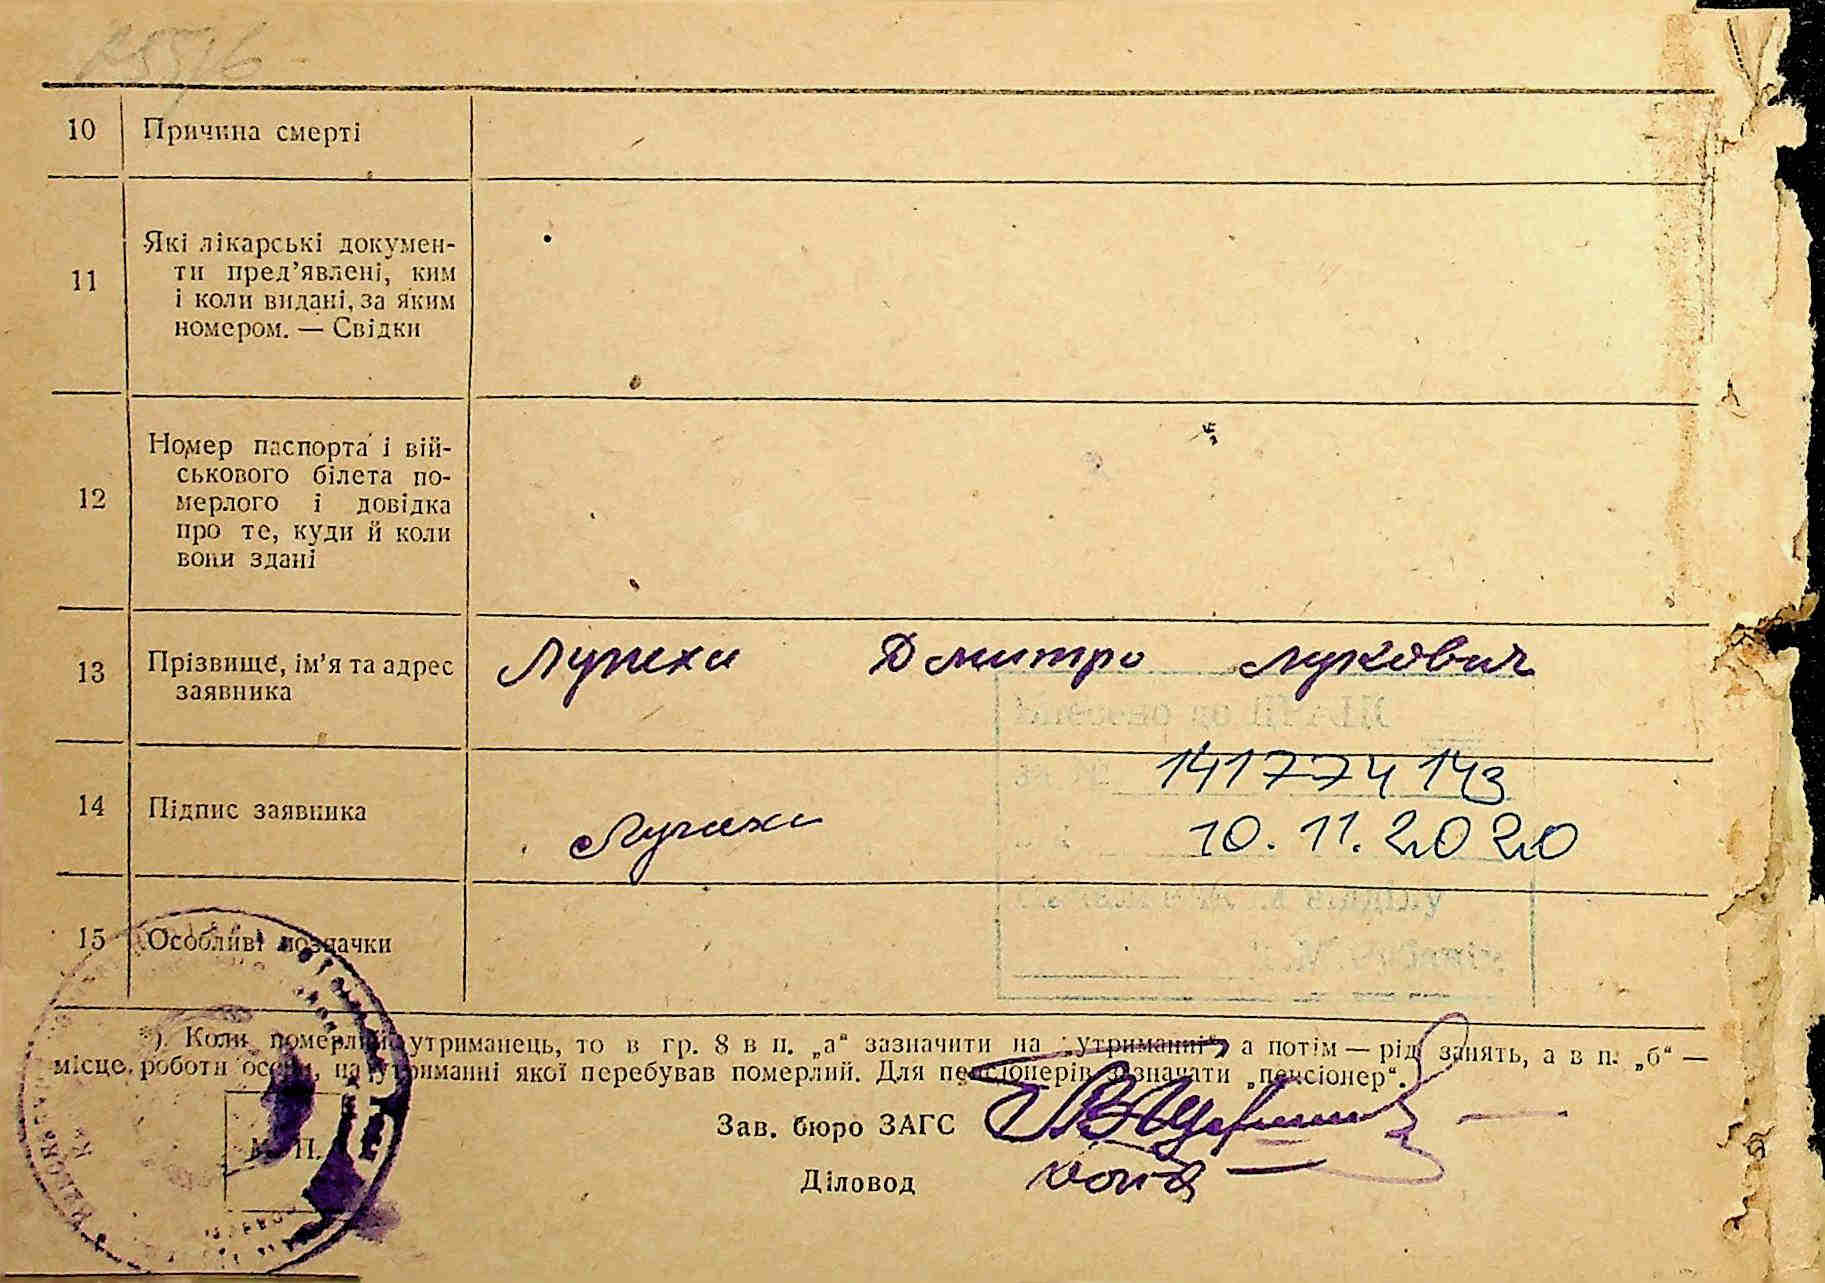 10 Причина смерті
11 Які лікарські докумен-
ти пред’явлені, ким
і коли видані, за яким
номером. — Свідки
12 Номер паспорта і вій-
ськового білета по-
мерлого і довідка
про те, куди й коли
вони здані
13 Прізвище, ім’я та адрес
заявника
Дмитро Лукович
Внесено до
за №
141774143
14 Підпис заявника
10.11.2020
відділу
15 Особливі позначки
*) Коли померлий утриманець, то в гр. 8 в п. „а“ зазначити на „утриманні“, а потім — рід занять, а в п. „б“ —
місце роботи особи, на утриманні якої перебував померлий. Для пенсіонерів зазначати „пенсіонер“.
Зав. бюро ЗАГС
М. П.
Діловод